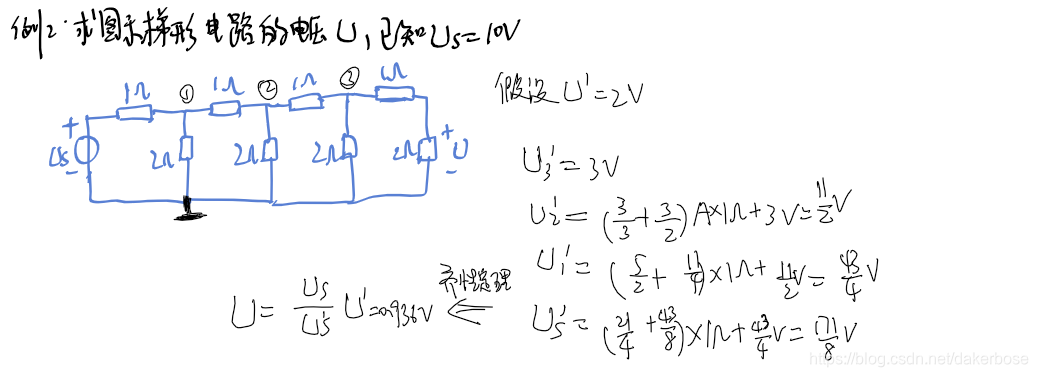 例2:求图示梯形电路的电压U,已知Us=10V
1Ω ① 1Ω ② 1Ω ③ 1Ω
+ Us - 2Ω 2Ω 2Ω 2Ω + U -
假设U'=2V
U3'=3V
U2'=(3/3+3/2)A×1Ω+3V=11/2V
U1'=(5/2+11/4)×1Ω+11/2V=43/4V
Us'=(21/4+43/8)×1Ω+43/4V=171/8V
U=Us/Us' U'=0.936V ⇐ 齐性定理
https://blog.csdn.net/dakerbose